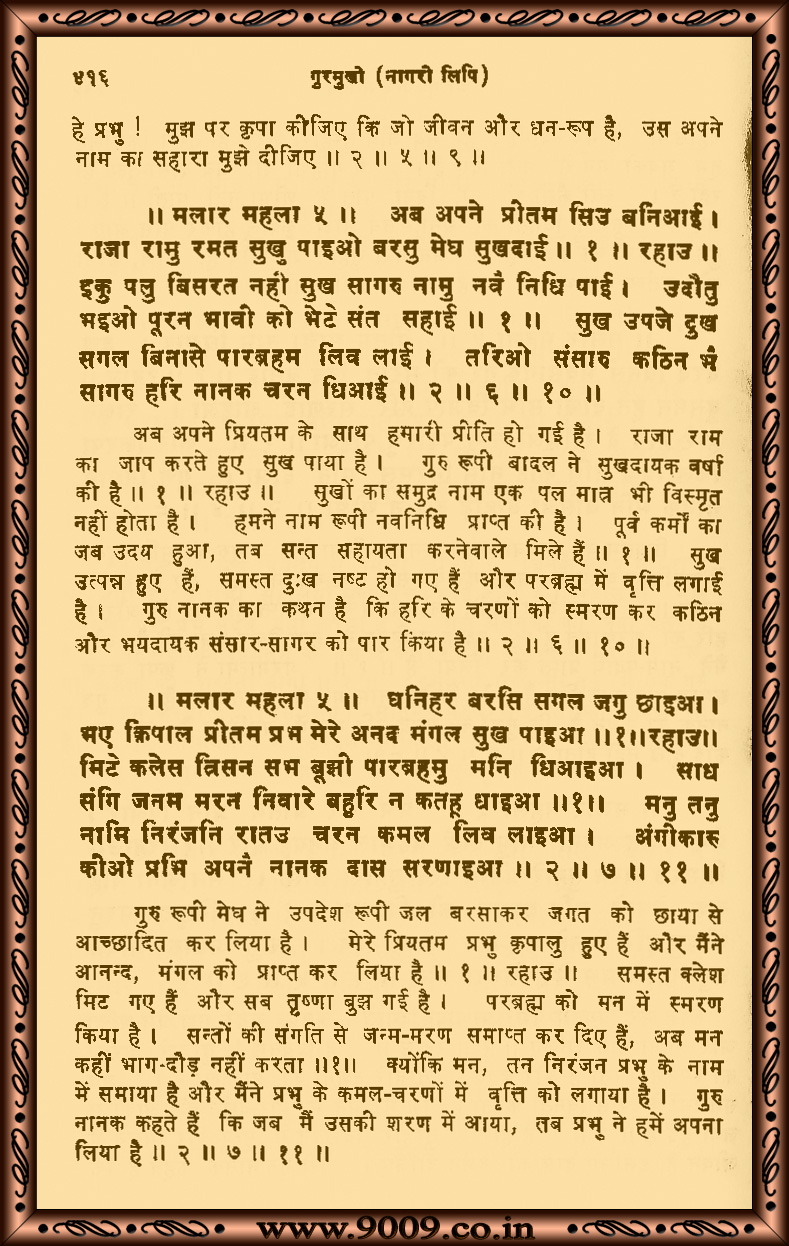 ४१६ गुरमुखी (नागरी लिपि)
हे प्रभु ! मुझ पर कृपा कीजिए कि जो जीवन और धन-रूप है, उस अपने
नाम का सहारा मुझे दीजिए ॥ २ ॥ ५ ॥ ९ ॥
॥ मलार महला ५ ॥ अब अपने प्रीतम सिउ बनिआई ।
राजा रामु रमत सुखु पाइओ बरसु मेघ सुखदाई ॥ १ ॥ रहाउ ॥
इकु पलु बिसरत नही सुख सागरु नामु नवै निधि पाई । उदौतु
भइओ पूरन भावी को भेटे संत सहाई ॥ १ ॥ सुख उपजे दुख
सगल बिनासे पारब्रहम लिव लाई । तरिओ संसारु कठिन भै
सागरु हरि नानक चरन धिआई ॥ २ ॥ ६ ॥ १० ॥
अब अपने प्रियतम के साथ हमारी प्रीति हो गई है । राजा राम
का जाप करते हुए सुख पाया है । गुरु रूपी बादल ने सुखदायक वर्षा
की है ॥ १ ॥ रहाउ ॥ सुखों का समुद्र नाम एक पल मात्र भी विस्मृत
नहीं होता है । हमने नाम रूपी नवनिधि प्राप्त की है । पूर्व कर्मों का
जब उदय हुआ, तब सन्त सहायता करनेवाले मिले हैं ॥ १ ॥ सुख
उत्पन्न हुए हैं, समस्त दुःख नष्ट हो गए हैं और परब्रह्म में वृत्ति लगाई
है । गुरु नानक का कथन है कि हरि के चरणों को स्मरण कर कठिन
और भयदायक संसार-सागर को पार किया है ॥ २ ॥ ६ ॥ १० ॥
॥ मलार महला ५ ॥ घनिहर बरसि सगल जगु छाइआ ।
भए क्रिपाल प्रीतम प्रभ मेरे अनद मंगल सुख पाइआ ॥१॥रहाउ॥
मिटे कलेस त्रिसन सभ बूझी पारब्रहमु मनि धिआइआ । साध
संगि जनम मरन निवारे बहुरि न कतहू धाइआ ॥१॥ मनु तनु
नामि निरंजनि रातउ चरन कमल लिव लाइआ । अंगीकारु
कीओ प्रभि अपनै नानक दास सरणाइआ ॥ २ ॥ ७ ॥ ११ ॥
गुरु रूपी मेघ ने उपदेश रूपी जल बरसाकर जगत को छाया से
आच्छादित कर लिया है । मेरे प्रियतम प्रभु कृपालु हुए हैं और मैंने
आनन्द, मंगल को प्राप्त कर लिया है ॥ १ ॥ रहाउ ॥ समस्त क्लेश
मिट गए हैं और सब तृष्णा बुझ गई है । परब्रह्म को मन में स्मरण
किया है । सन्तों की संगति से जन्म-मरण समाप्त कर दिए हैं, अब मन
कहीं भाग-दौड़ नहीं करता ॥१॥ क्योंकि मन, तन निरंजन प्रभु के नाम
में समाया है और मैंने प्रभु के कमल-चरणों में वृत्ति को लगाया है । गुरु
नानक कहते हैं कि जब मैं उसकी शरण में आया, तब प्रभु ने हमें अपना
लिया है ॥ २ ॥ ७ ॥ ११ ॥
www.9009.co.in